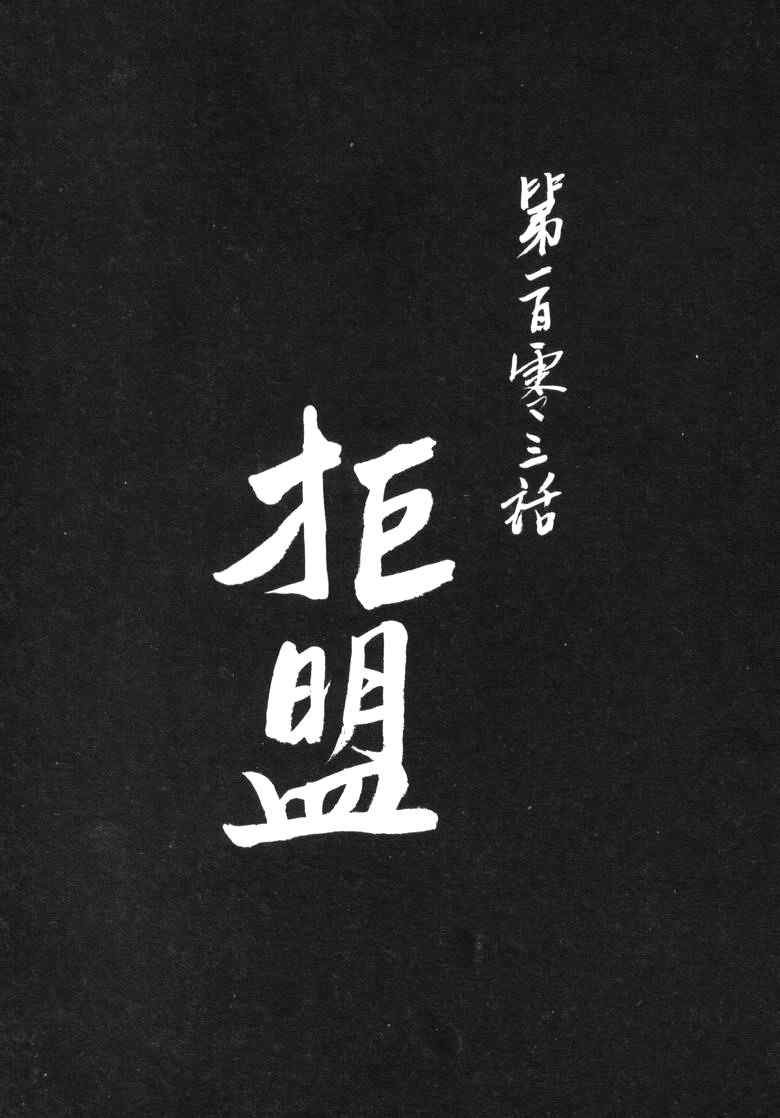 第一百零三話
拒盟